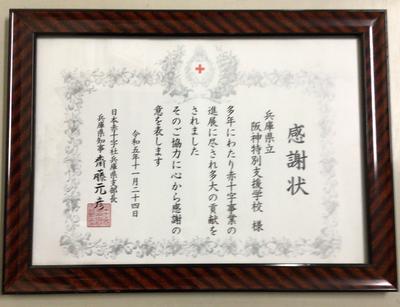 感謝状
兵庫県立
阪神特別支援学校 様
多年にわたり赤十字事業の
進展に尽され多大の貢献を
されました
そのご協力に心から感謝の
意を表します
令和五年十一月二十四日
日本赤十字社兵庫県支部長
兵庫県知事 齋藤元彦